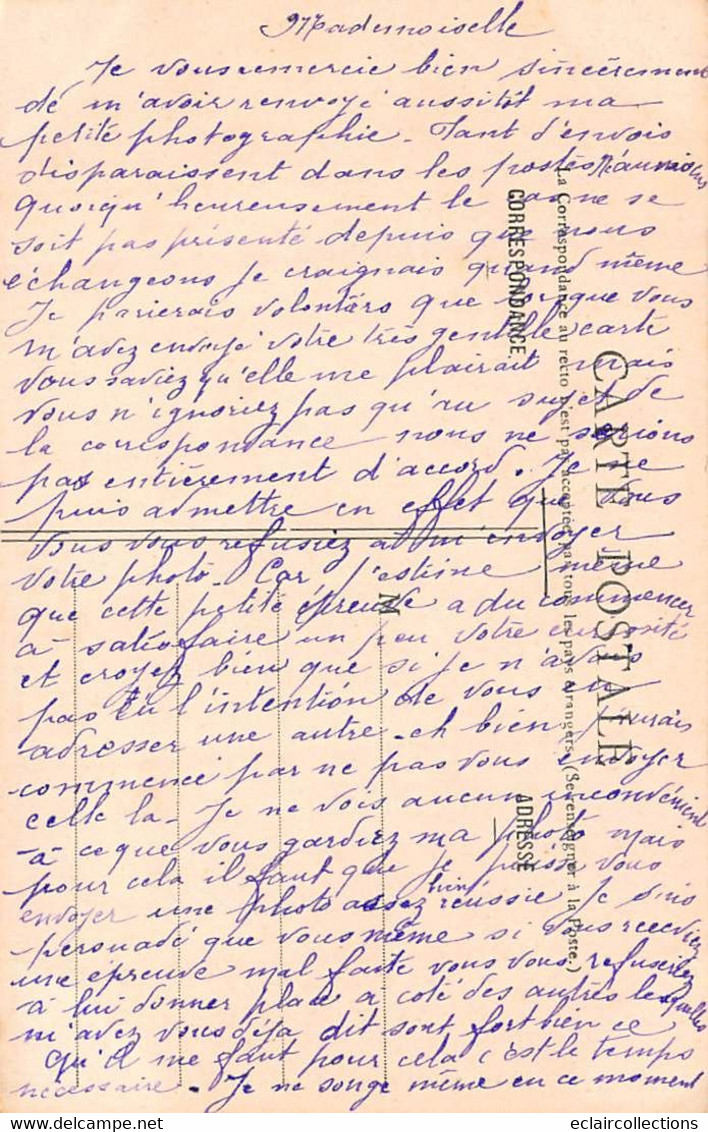 Mademoiselle
Je vous remercie bien sincèrement
de m'avoir renvoyé aussitôt ma
petite photographie - Tant d'envois
disparaissent dans les postes Néanmoins
quoiqu'heureusement le cas ne se
soit pas présenté depuis que nous
échangeons je craignais quand même
Je parierais volontiers que lorsque vous
m'avez envoyé votre très gentille carte
vous saviez qu'elle me plairait mais
vous n'ignoriez pas qu'au sujet de
la correspondance nous ne serions
pas entièrement d'accord. Je ne
puis admettre en effet que vous
vous vous refusiez à m'envoyer
votre photo - Car j'estime même
que cette petite épreuve a du commencer
à satisfaire un peu votre curiosité
et croyez bien que si je n'avais
pas eu l'intention de vous en
adresser une autre - eh bien j'aurais
commencé par ne pas vous envoyer
celle la - Je ne vois aucun inconvénient
à ce que vous gardiez ma photo mais
pour cela il faut que je puisse vous
envoyer une photo assez bien réussie Je suis
persuadé que vous même si vous receviez
une épreuve mal faite vous vous refuseriez
à lui donner place à coté des autres lesquelles
m'avez vous déja dit sont fort bien ce
qu'il me faut pour cela c'est le temps
nécessaire - Je ne songe même en ce moment
CARTE POSTALE
La Correspondance au recto n'est pas acceptée par tous les pays étrangers. (Se renseigner à la Poste.)
CORRESPONDANCE
ADRESSE
M
eclaircollections@delcampe.net